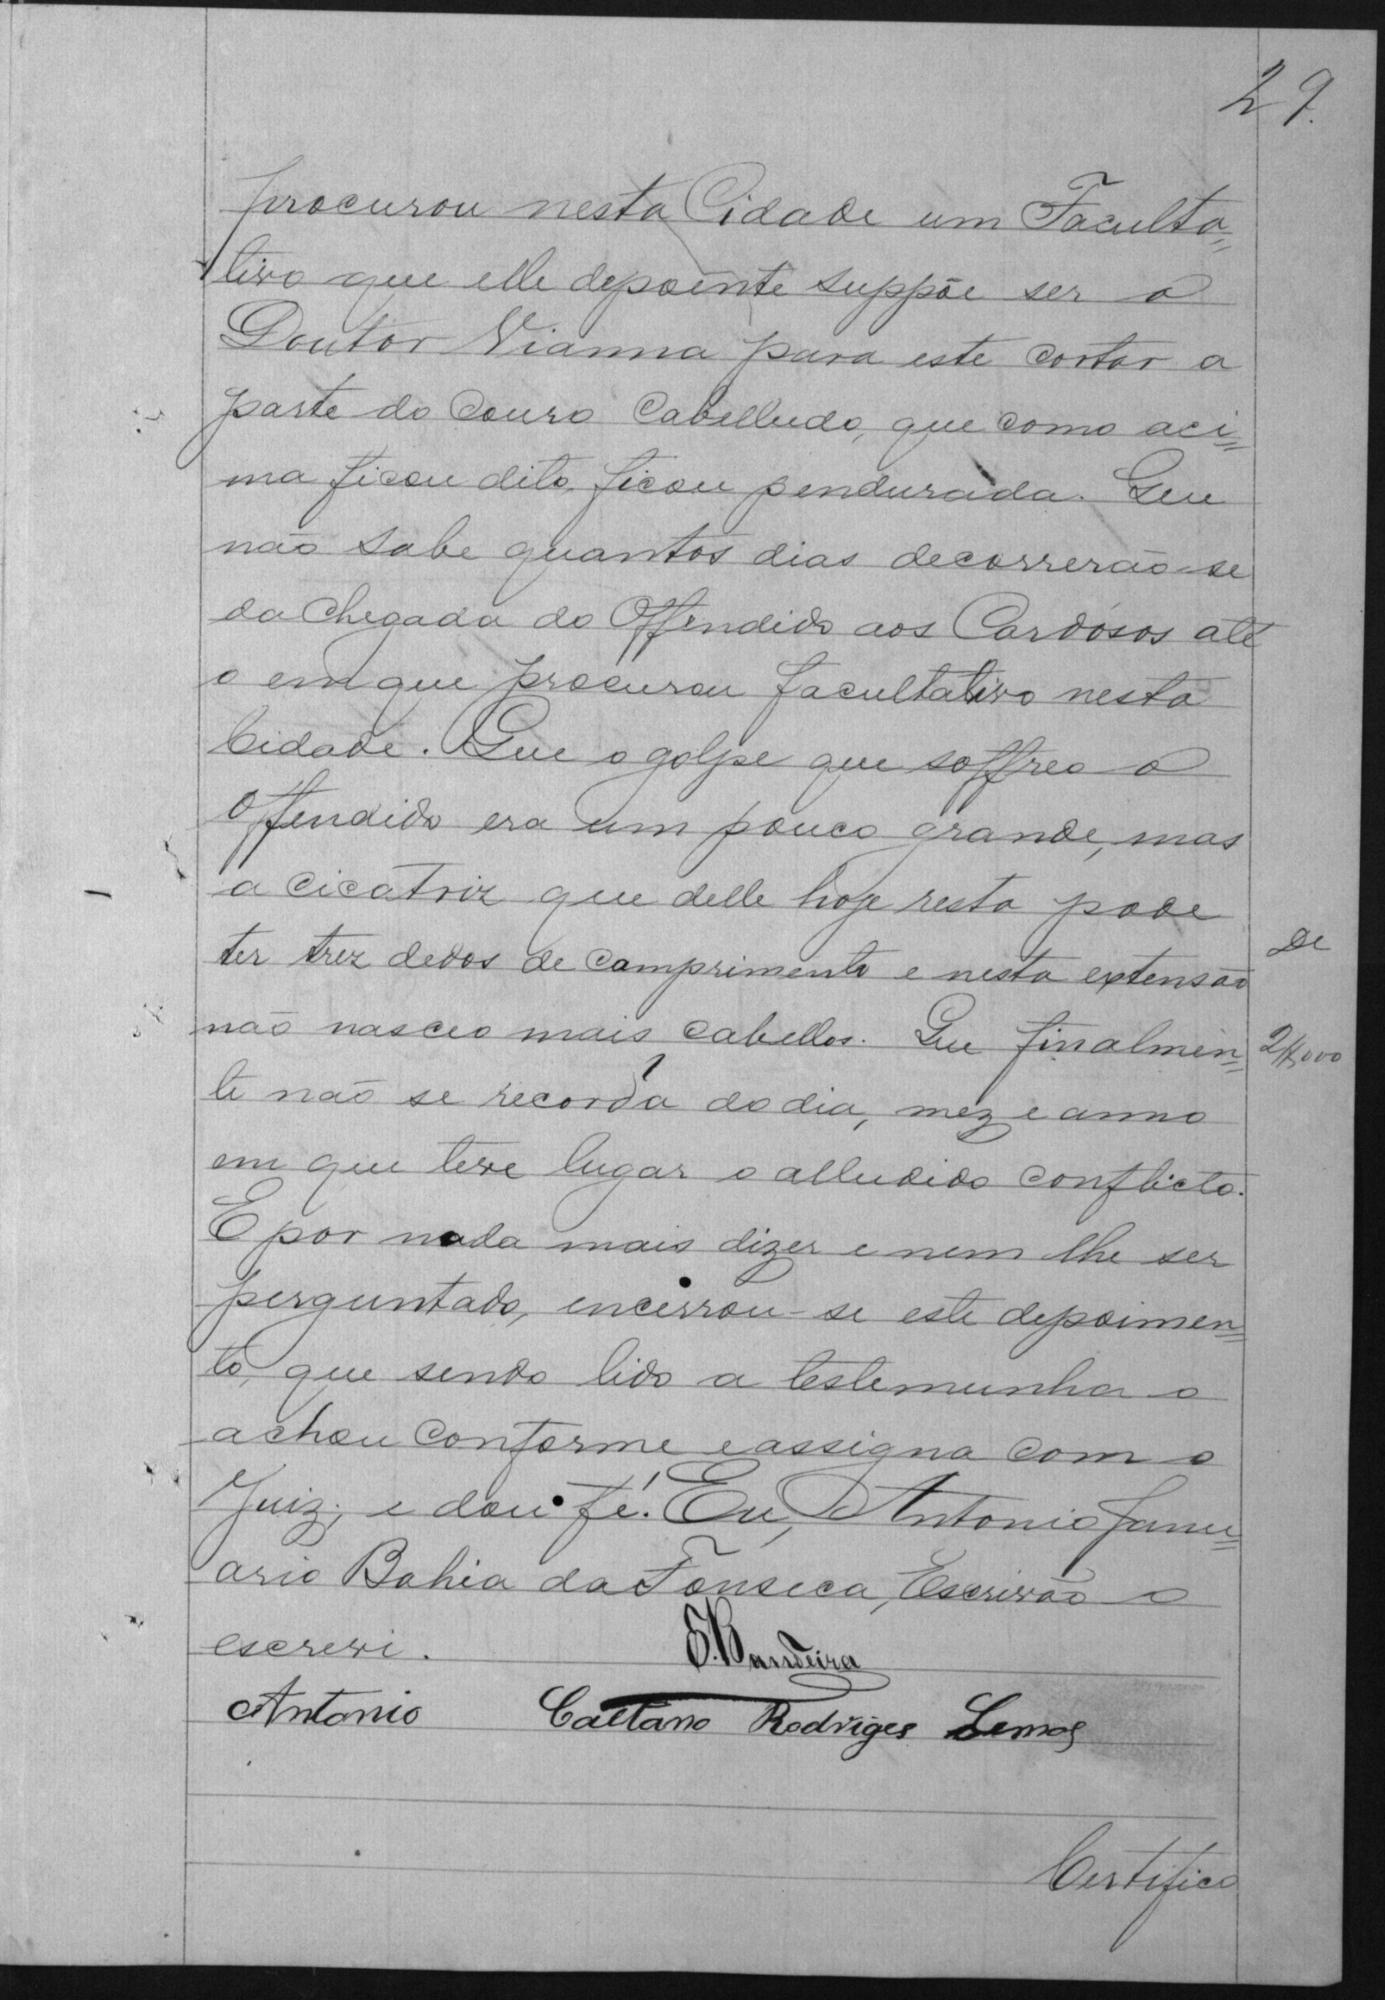 29.
procurou nesta Cidade um Faculta=
tivo que elle depoente suppõe ser o
Doutor Vianna para este cortar a
parte do Couro Cabelludo, que como aci=
ma ficou dito, ficou pendurada. Que
não sabe quantos dias decorrerão-se
da chegada do Offendido aos Cardósos até
o em que procurou facultativo nesta
Cidade. Que o golpe que soffreo o
Offendido era um pouco grande, mas
a cicatriz que delle hoje resta pode
ter trez dedos de comprimento e nesta extensão
De
não nasceo mais cabellos. Que finalmen=
te não se recorda do dia, mez e anno
em que teve lugar o alludido conflicto.
E por nada mais dizer e nem lhe ser
perguntado, encerrou-se este depoimen=
to, que sendo lido a testemunha o
achou conforme e assigna com o
Juiz; e dou fé. Eu, Antonio Janu=
ario Bahia da Fonseca, Escrivão o
escrevi.
E. Bandeira
Antonio Caetano Rodriges Lemos
Certifico